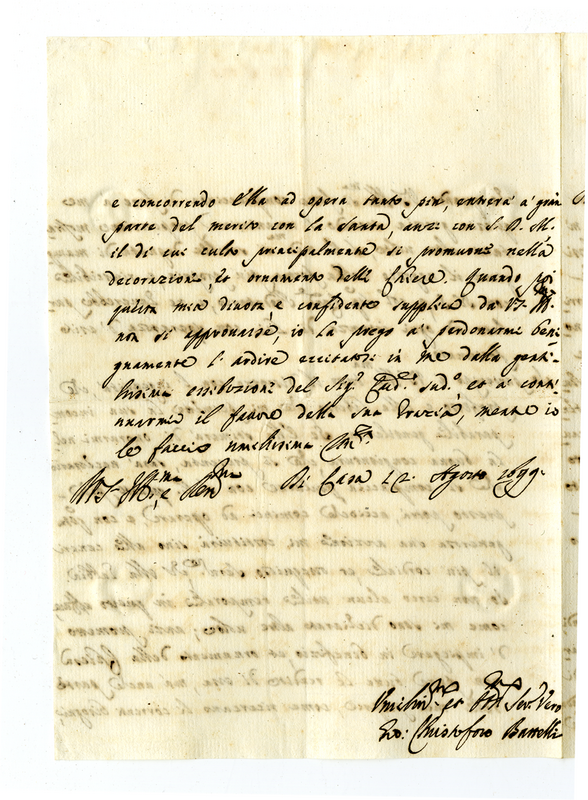 e concorrendo Ella ad opera tanto pia, entrerà a gran
parte del merito con la Santa, anzi con S. D. M.
il di cui culto principalmente si promuove nella
decorazione, et ornamento delle Chiese. Quando poi
questa mia divota, e confidente supplica da V.S. Ill.ma
non si approvasse, io la prego à perdonarmi beni-
gnamente l'ardire eccitatosi in me dalla genti-
lissima esibizione del Sig.r Cad.e sud.o et à conti-
nuarmi il favore della sua Grazia, mentre io
le faccio umilissima
V.S. Ill.ma e Rev.ma Di Casa 12. Agosto 1699.
Umiliss.mo et Serv. Vero
Christoforo Battelli